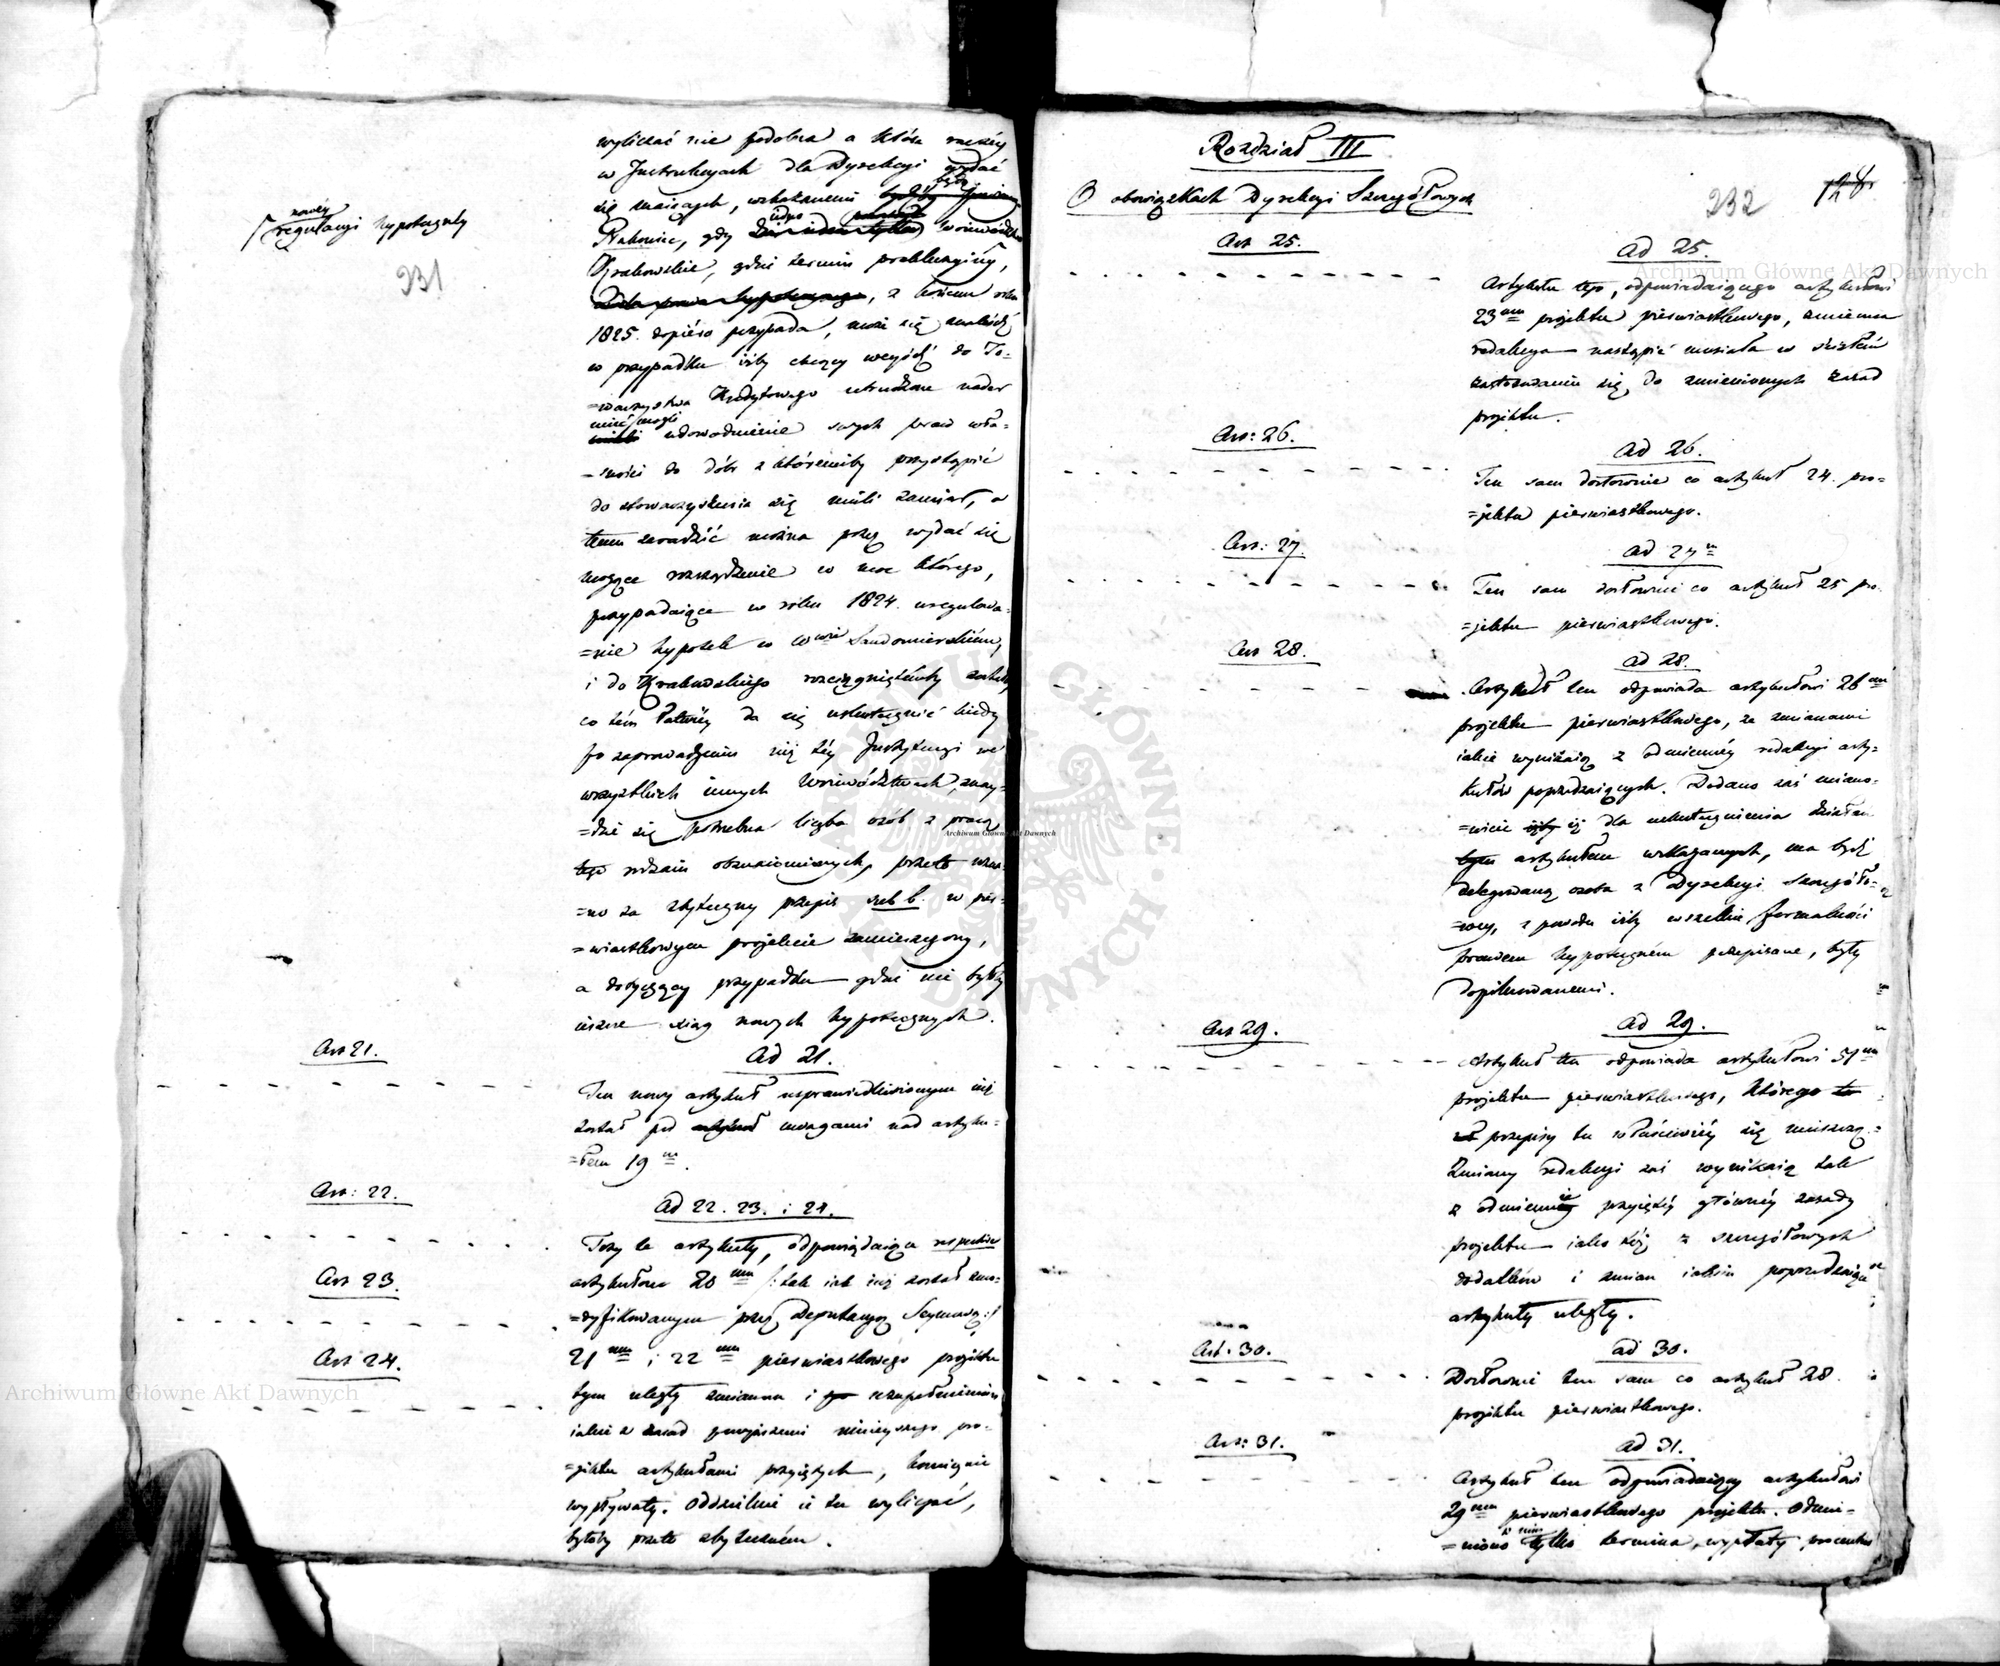 wyliczać nie podobna a które raczéy
w Instrukcyach dla Dyrekcyi wydać
się maiących, wskazanemi być
nowéy
regulacyi hypoteczney
231
Nakoniec, gdy Województwo
Krakowskie, gdzie termin prekluzyiny,
z końcem roku
1825. dopiéro przypada, może się znaleźć
w przypadku iżby chcący weyść do To=
=warzystwa Kredytowego utrudzone nader
mieć mogli udowodnienie swych praw wła=
=sności do dóbr z któremiby przystąpić
do stowarzyszenia się mieli zamiar, a
temu zaradzić można przez wydać się
mogące rozrządzenie w moc którego,
przypadaiące w roku 1824. uregulowa=
=nie hypotek w Sandomierskiém,
i do Krakowskiego rozciągnięteby zostało,
co tém łatwiéy da się uskutecznić kiedy
po zaprowadzeniu iuż téy Instytucyi we
wszystkich innych Województwach, znay=
=dzie się potrzebna liczba osób z pracą
tego rodzaiu obznaiomionych, przeto uzna=
=no za zbyteczny przepis sub b. w pier=
=wiastkowym projekcie zamieszczony,
a dotyczący przypadku gdzie nie byłoby
ieszcze xiąg nowych hypotecznych.
Art 21.
Ad 21.
Ten nowy artykuł usprawiedliwionym iuż
został pod uwagami nad artyku=
=łem 19 m.
Art: 22.
Ad 22. 23. i 24.
Trzy te artykuły, odpowiadaiące respective
artykułom 20 mu /: tak iak iuż został zmo=
Art 23.
=dyfikowanym przez Deputacyą Seymową :/
Art 24.
21 mu i 22 mu pierwiastkowego projektu
tym uległy zmianom i uzupełnieniom
iakie z zasad poprzedzaiącemi ninieyszego pro=
=jektu artykułami przyiętych, koniecznie
wypływały. Oddzielnie ie tu wyliczać,
byłoby przeto zbyteczném.
Rozdział III
O obowiązkach Dyrekcyi Szczegółowych
232
128
Art 25.
Ad 25.
Artykułu tego, odpowiadaiącego artykułowi
23mu projektu pierwiastkowego, zmienna
redakcya nastąpić musiała w skutku
zastosowania się do zmienionych zasad
projektu.
Art: 26.
Ad 26.
Ten sam dosłownie co artykuł 24. pro=
=jektu pierwiastkowego.
Art: 27.
Ad 27 m
Ten sam dosłownie co artykuł 25 pro=
=jektu pierwiastkowego.
Art 28.
Ad 28.
Artykuł ten odpowiada artykułowi 26 mu
projektu pierwiastkowego, ze zmianami
iakie wynikaią z odmiennéy redakcyi arty=
kułów poprzedzaiących. Dodano zaś miano=
=wicie iż dla uskutecznienia działań
tym artykułem wskazanych, ma być
delegowaną osoba z Dyrekcyi Szczegóło=
=wey, z powodu iżby wszelkie formalności
prawem hypoteczném przepisane, były
dopilnowanemi.
Art 29.
Ad 29.
Artykuł ten odpowiada artykułowi 51 mu
projektu pierwiastkowego, którego
przepisy tu właściwiéy się mieszczą.
Zmiany redakcyi zaś wynikaią tak
z odmiennie przyiętéy głównéy zasady
projektu iako też z szczegółowych
dodatków i zmian iakim poprzedzaiące
artykuły uległy.
Art. 30.
ad 30.
Dosłownie ten sam co artykuł 28.
projektu pierwiastkowego.
Art: 31.
ad 31.
Artykuł ten odpowiadaiący artykułowi
29 mu pierwiastkowego projektu. Odmie=
=niono w nim tylko termina, wypłaty procentów
Archiwum Główne Akt Dawnych
Archiwum Główne Akt Dawnych
Archiwum Główne Akt Dawnych
ARCHIWUM GŁÓWNE AKT DAWNYCH